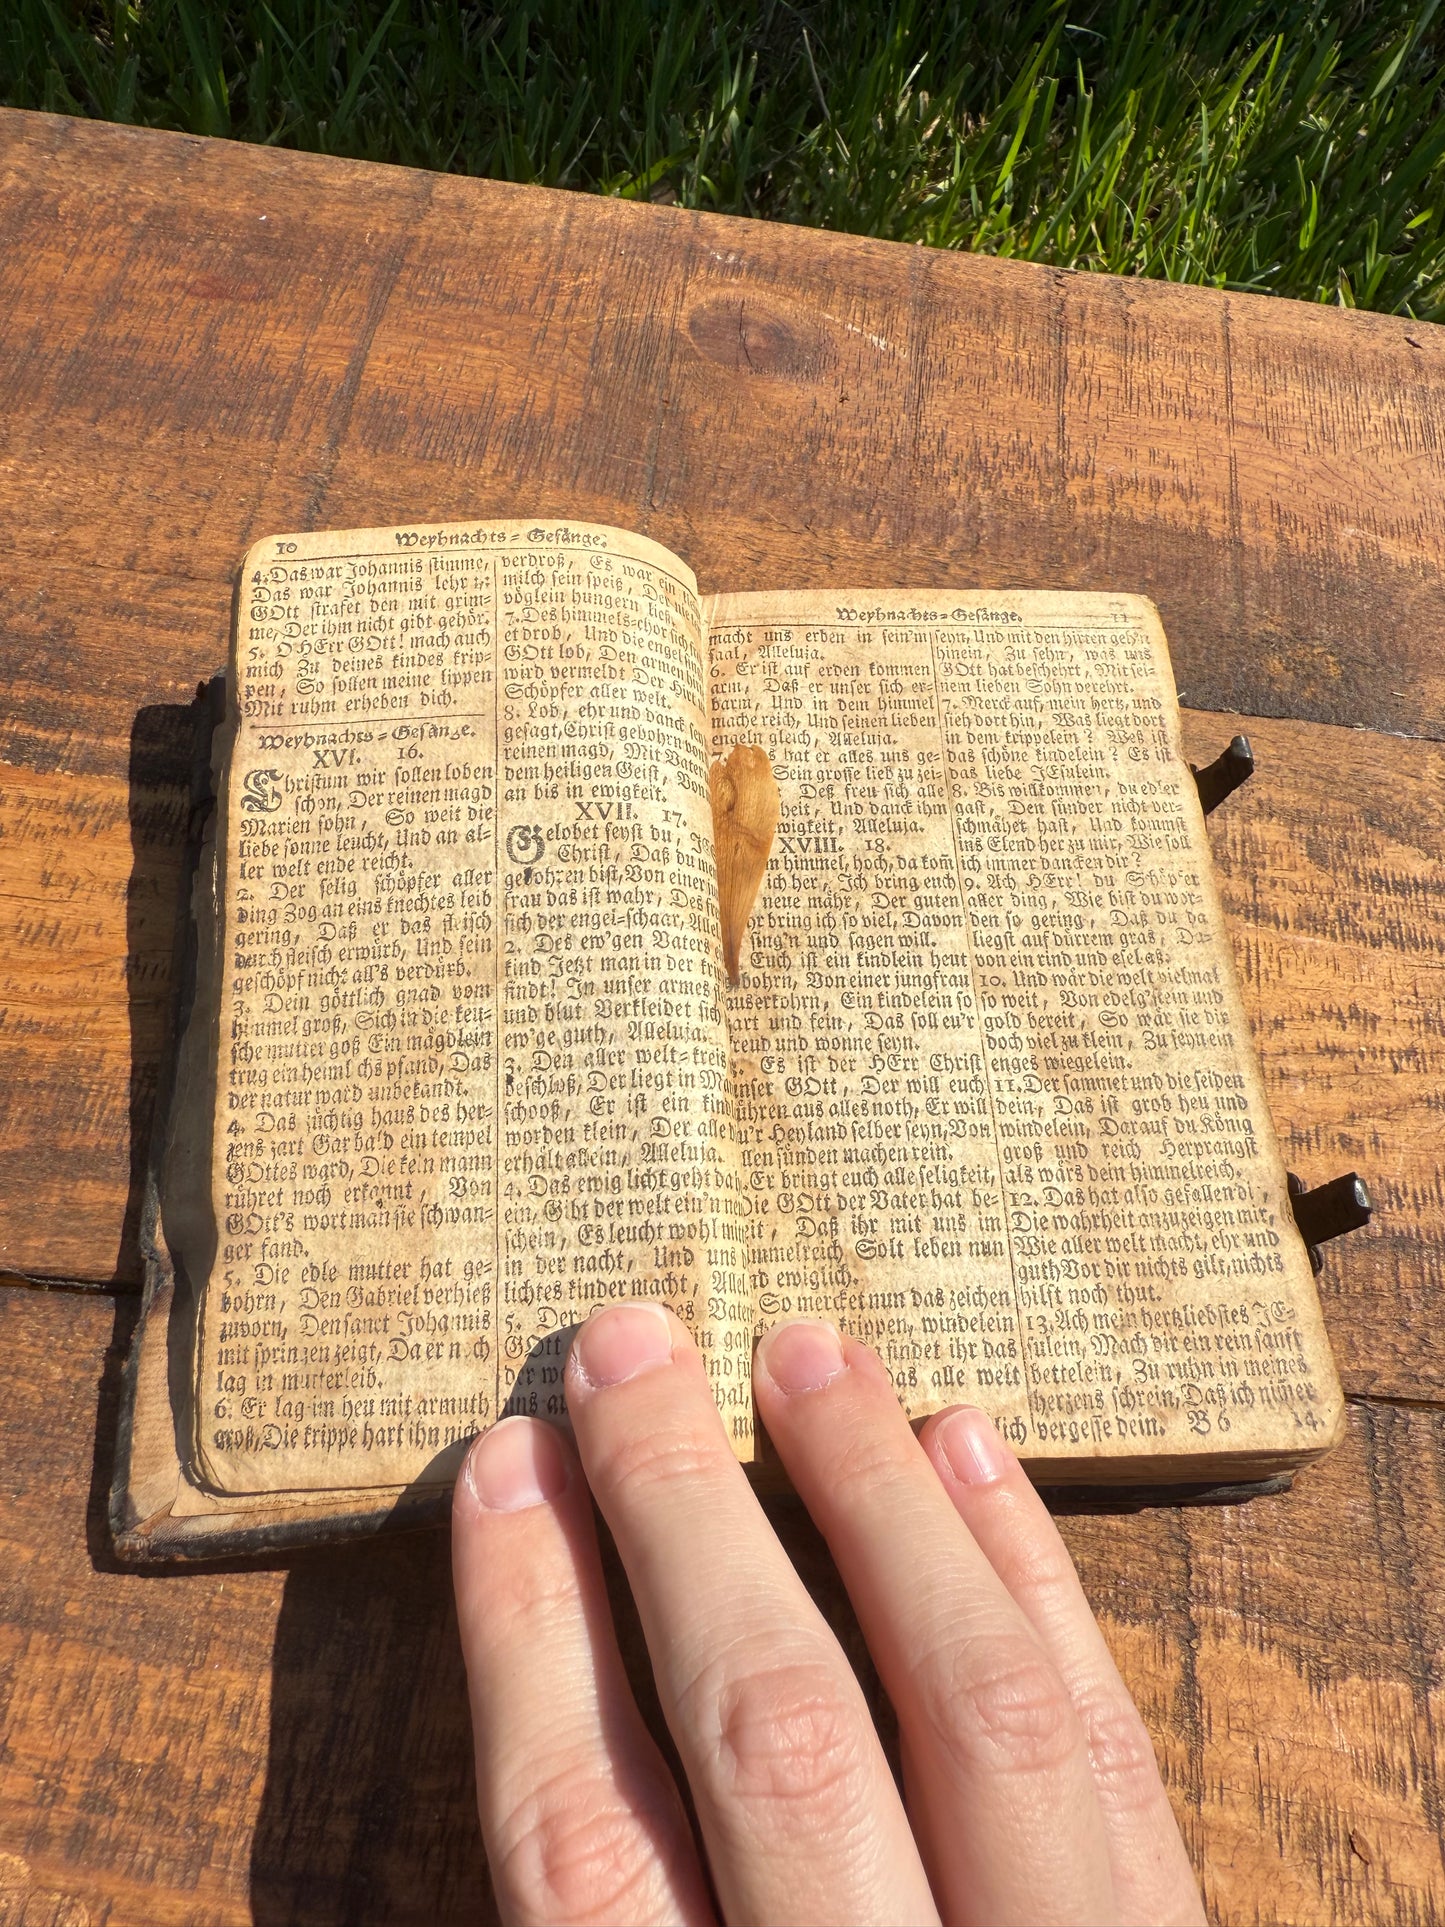 10 Weyhnachts=Gesänge.
4. Das war Johannis stimme,
Das war Johannis lehr
GOtt strafet den mit grim=
me, Der ihm nicht gibt gehör.
5. O HErr GOtt! mach auch
mich Zu deines kindes krip=
pen, So sollen meine lippen
Mit ruhm erheben dich.
Weyhnachts=Gesänge.
XVI. 16.
Christum wir sollen loben
schon, Der reinen magd
Marien sohn, So weit die
liebe sonne leucht, Und an al=
ler welt ende reicht.
2. Der selig schöpfer aller
ding Zog an eins knechtes leib
gering, Daß er das fleisch
durch fleisch erwürb, Und sein
geschöpf nicht all's verdürb.
3. Dein göttlich gnad vom
himmel groß, Sich in die keu=
sche mutter goß Ein mägdlein
trug ein heiml chs pfand, Das
der natur ward unbekandt.
4. Das züchtig haus des her=
zens zart Gar bald ein tempel
GOttes ward, Die kein mann
rühret noch erkannt, Von
GOtt's wort man sie schwan=
ger fand.
5. Die edle mutter hat ge=
bohrn, Den Gabriel verhieß
zuvorn, Den sanct Johannis
mit springen zeigt, Da er n ch
lag in mutterleib.
6. Er lag im heu mit armuth
groß, Die krippe hart ihn nicht
verdroß, Es war ein
milch sein speiß, Der nie
vöglein hungern ließ.
7. Des himmels=chor sich
et drob, Und die engel
GOtt lob, Den armen
wird vermeldt Der Hirt
Schöpfer aller welt.
8. Lob, ehr und danck sey
gesagt, Christ gebohrn von
reinen magd, Mit Vater
dem heiligen Geist, Von
an bis in ewigkeit.
XVII. 17.
Gelobet seyst du, JE
Christ, Daß du
gebohren bist, Von einer
frau das ist wahr, Des
sich der engel=schaar, Alle
2. Des ew'gen Vaters
kind Jetzt man in der
findt! In unser armes
und blut Verkleidet sich
ew'ge guth, Alleluja.
3. Den aller welt=kreis
beschloß, Der liegt in Ma
schooß, Er ist ein kind
worden klein, Der alle
erhält allein, Alleluja.
4. Das ewig licht geht da
ein, Gibt der welt ein'n
schein, Es leucht wohl
in der nacht, Und uns
lichtes kinder macht, Alle
5. Der des Vater
GOtt in gast
der
uns
Weyhnachts=Gesänge. 11
macht uns erben in sein'm
saal, Alleluja.
6. Er ist auf erden kommen
arm, Daß er unser sich er=
barm, Und in dem himmel
mache reich, Und seinen lieben
engeln gleich, Alleluja.
7. hat er alles uns ge=
Sein grosse lieb zu zei=
Deß freu sich alle
heit, Und danck ihm
wigkeit, Alleluja.
XVIII. 18.
m himmel, hoch, da kom̃
ich her, Ich bring euch
neue mähr, Der guten
bring ich so viel, Davon
sing'n und sagen will.
Euch ist ein kindlein heut
gebohrn, Von einer jungfrau
auserkohrn, Ein kindelein so
zart und fein, Das soll eu'r
freud und wonne seyn.
3. Es ist der HErr Christ
unser GOtt, Der will euch
führen aus alles noth, Er will
eu'r Heyland selber seyn, Von
allen sünden machen rein.
Er bringt euch alle seligkeit,
Die GOtt der Vater hat be=
reit, Daß ihr mit uns im
himmelreich Solt leben nun
ewiglich.
So mercket nun das zeichen
krippen, windelein
Da findet ihr das
Das alle welt
seyn, Und mit den hirten gehn
hinein, Zu sehn, was uns
GOtt hat beschehrt, Mit sei=
nem lieben Sohn verehrt.
7. Merck auf, mein hertz, und
sieh dort hin, Was liegt dort
in dem krippelein? Wes ist
das schöne kindelein? Es ist
das liebe JEsulein.
8. Bis willkommen, du edler
gast, Den sünder nicht ver=
schmähet hast, Und kommst
ins Elend her zu mir, Wie soll
ich immer dancken dir?
9. Ach HErr! du Schöpfer
aller ding, Wie bist du wor=
den so gering, Daß du da
liegst auf dürrem gras, Da=
von ein rind und esel aß.
10. Und wär die welt vielmal
so weit, Von edelg'stein und
gold bereit, So wär sie dir
doch viel zu klein, Zu seyn ein
enges wiegelein.
11. Der sammet und die seiden
dein, Das ist grob heu und
windelein, Darauf du König
groß und reich Herprangst
als wärs dein himmelreich.
12. Das hat also gefallen di ,
Die wahrheit anzuzeigen mir,
Wie aller welt macht, ehr und
guth Vor dir nichts gilt, nichts
hilft noch thut.
13. Ach mein hertzliebstes JE=
sulein, Mach dir ein rein sanft
bettelein, Zu ruhn in meines
herzens schrein, Daß ich nimer
vergesse dein. B 6 14.